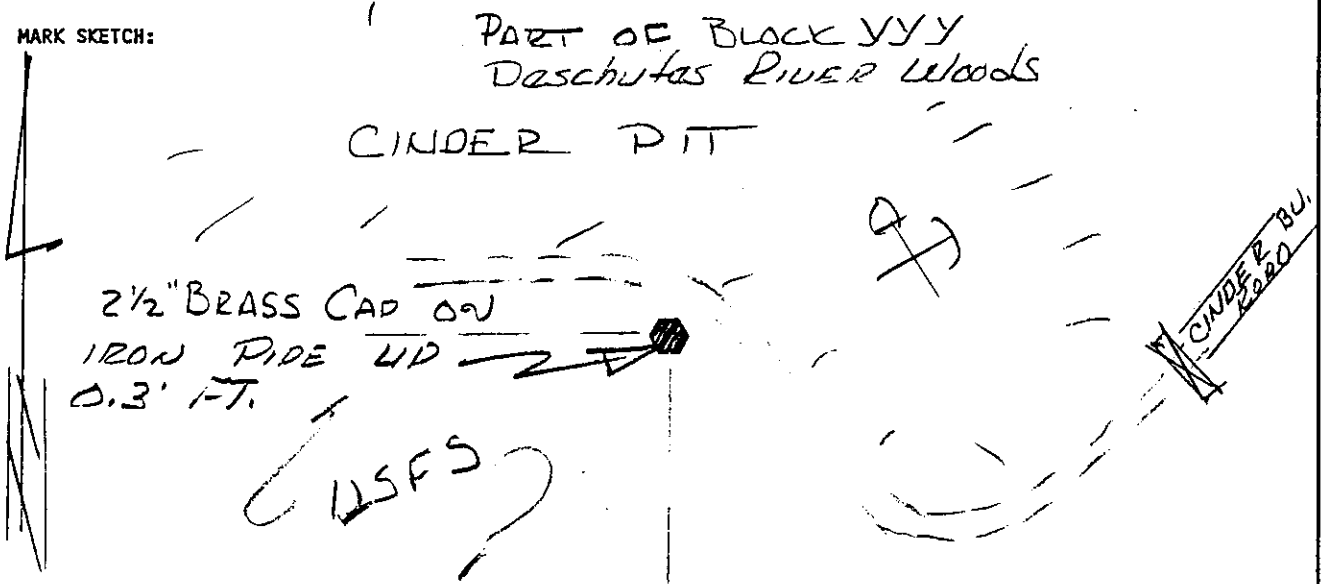 MARK SKETCH:
PART OF BLOCK YYY
Deschutes RIVER Woods
CINDER PIT
2½" BRASS CAP ON
IRON PIPE UP
0.3' FT.
USFS
CINDER BU.
ROAD